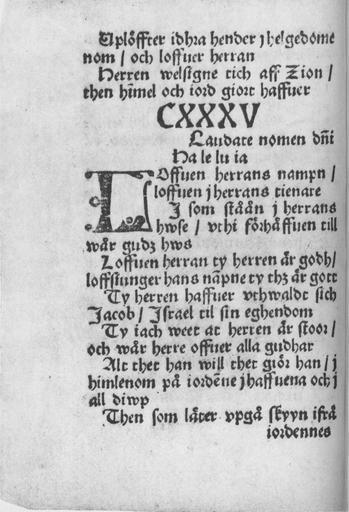 Uplöffter idhra hender j helgedome
nom / och loffuer herran
Herren welsigne tich aff Zion /
then hīmel och iord giort haffuer
CXXXV
Laudate nomen dn̄i
Ha le lu ia
Loffuen herrans nampn /
loffuen j herrans tienare
J som stāān j herrans
hwse / vthi förhäffuen till
wår gudz hws
Loffuen herran ty herren är godh /
loffsiunger hans nāpne ty thz är gott
Ty herren haffuer vthwaldt sich
Jacob / Israel til sin eghendom
Ty iach weet at herren är stoor /
och wår herre offuer alla gudhar
Alt thet han will thet giör han / j
himlenom på iordēne j haffuena och j
all diwp
Then som låter vpgå skyyn ifrå
iordennes